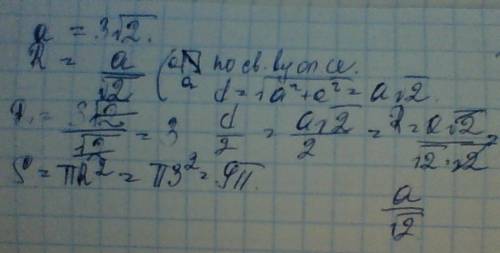 a = 3√2.
R = a/√2 ( по св.
d = √a²+a² = a√2.
R = 3√2/√2 = 3 d/2 = a√2/2 = R = a√2/√2·√2 =
S = πR² = π3² = 9π.
a/√2